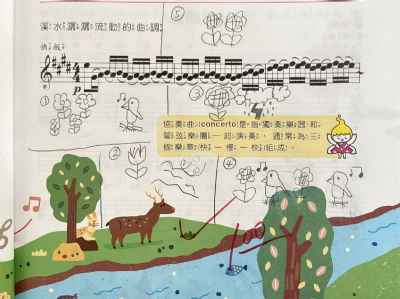 ⑤
溪水潺潺流動的曲調
4
4
p
①
③
協奏曲(concerto)是指獨奏樂器和
管弦樂團一起演奏，通常為三
個樂章(快—慢—快)組成。
②
④
100